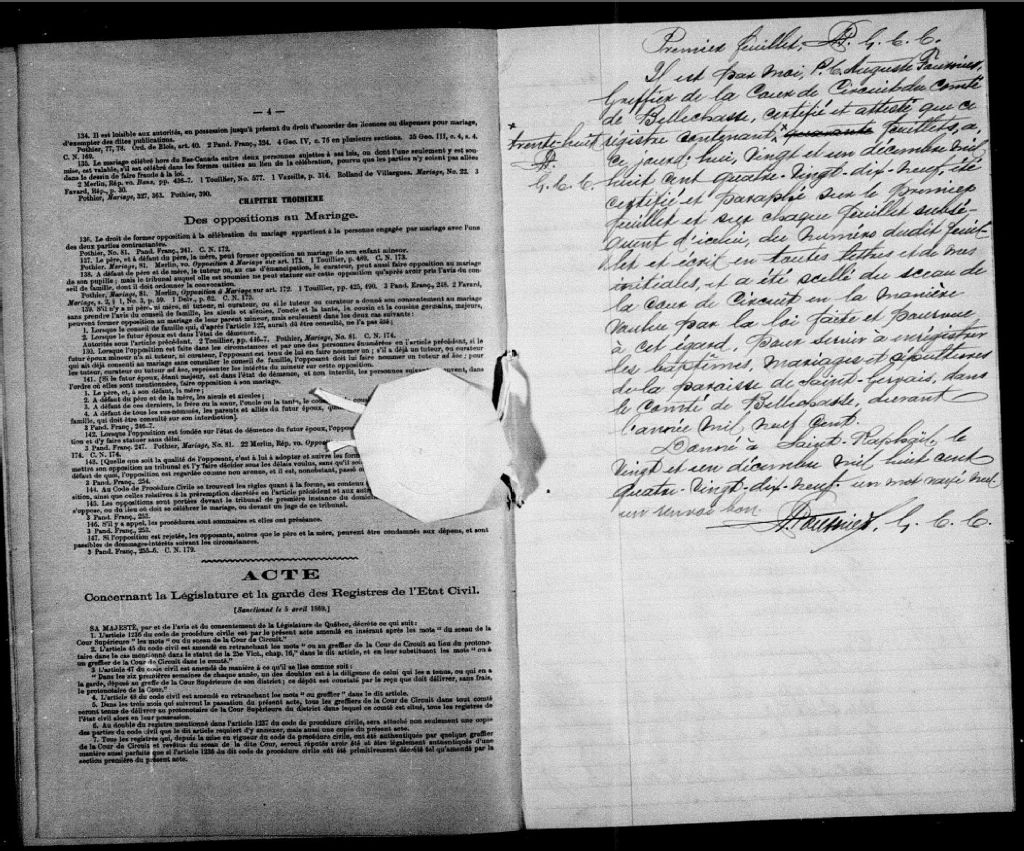 — 4 —
134. Il est loisible aux autorités, en possession jusqu'à présent du droit d'accorder des licences ou dispenses pour mariage,
d'exempter des dites publications.
Pothier, 77, 78. Ord. de Blois, art. 40. 2 Pand. Franç., 324. 4 Geo. IV, c. 76 en plusieurs sections. 35 Geo. III, c. 4, s. 4.
C. N. 169.
135. Le mariage célébré hors du Bas-Canada entre deux personnes sujettes à ses lois, ou dont l'une seulement y est sou-
mise, est valable, s'il est célébré dans les formes usitées au lieu de la célébration, pourvu que les parties n'y soient pas allées
dans le dessin de faire fraude à la loi.
2 Merlin, Rép. vo. Bans, pp. 1 Touillier, No. 577. 1 Vazeille, p. 314. Rolland de Villargues. Mariage, No. 22. 3
Favard, Rép., p. 30.
Pothier, Mariage, 327, 363. Pothier, 390.
CHAPITRE TROISIEME
Des oppositions au Mariage.
136. Le droit de former opposition à la célébration du mariage appartient à la personne engagée par mariage avec l'une
des deux parties contractantes.
Pothier, No. 81. Pand. Franç., 241. C. N. 172.
137. Le père, et à défaut du père, la mère, peut former opposition au mariage de son enfant mineur.
Pothier, Mariage, 81. Merlin, vo. Opposition à Mariage sur art. 173. 1 Touillier, p. 489. C. N. 173.
138. A défaut de père et de mère, le tuteur ou, au cas d'émancipation, le curateur, peut aussi faire opposition au mariage
de son pupille; mais le tribunal auquel elle est soumise ne peut statuer sur cette opposition qu'après avoir pris l'avis du con-
seil de famille, dont il doit ordonner la convocation.
Pothier, Mariage, 81. Merlin, Opposition à Mariage sur art. 172. 1 Touillier, pp. 425, 490. 3 Pand. Franç., 248. 2 Favard,
Mariage, s. 2, § 1, No. 2, p. 59. 1 Delv., p. 62. C. N. 175.
139. S'il n'y a ni père, ni mère, ni tuteur, ni curateur, ou si le tuteur ou curateur a donné son consentement au mariage
sans prendre l'avis du conseil de famille, les aïeuls et aïeules, l'oncle et la tante, le cousin et la cousine germains, majeurs,
peuvent former opposition au mariage de leur parent mineur, mais seulement dans les deux cas suivants:
1. Lorsque le conseil de famille qui, d'après l'article 122, aurait dû être consulté, ne l'a pas été;
2. Lorsque le futur époux est dans l'état de démence.
Autorités sous l'article précédent. 2 Touillier, pp. 446-7. Pothier, Mariage, No. 81. C. N. 174.
Lorsque l'opposition est faite dans les circonstances et par une des personnes énumérées en l'article précédent, si le
futur époux mineur n'a ni tuteur, ni curateur, l'opposant est tenu de lui en faire nommer un; s'il a déjà un tuteur, ou curateur
qui ait déjà consenti au mariage sans consulter le conseil de famille, l'opposant doit lui faire nommer un tuteur ad hoc; pour
les tuteur, curateur ou tuteur ad hoc, représenter les intérêts du mineur sur cette opposition.
141. [Si le futur époux, étant majeur, est dans l'état de démence, et non interdit, les personnes suivantes peuvent, dans
l'ordre où elles sont mentionnées, faire opposition à son mariage.
1. Le père, et, à son défaut, la mère;
2. A défaut du père et de la mère, les aïeuls et aïeules;
3. A défaut de ces derniers, le frère ou la sœur, l'oncle ou la tante, le
4. A défaut de tous les sus-nommés, les parents et alliés du futur époux,
famille, qui doit être consulté sur son interdiction].
3 Pand. Franç., 246-7.
142. Lorsque l'opposition est fondée sur l'état de démence du futur époux,
tion et d'y faire statuer sans délai.
3 Pand. Franç. 247. Pothier, Mariage, No. 81. 22 Merlin, Rép. vo.
174. C. N. 174.
143. [Quelque que soit la qualité de l'opposant, c'est à lui à adopter et suivre les
mettre son opposition au tribunal et l'y faire décider sous les délais voulus, sans qu'il
défaut de quoi, l'opposition est regardée comme non avenue, et il est, nonobstant,
2 Pand. Franç., 254.
144. Au Code de Procédure Civile se trouvent les règles quant à la forme, au contenu
sition, ainsi que celles relatives à la péremption décrétée en l'article précédent
145. Les oppositions sont portées devant le tribunal de première instance du
s'oppose, ou du lieu où doit se célébrer le mariage, ou devant un juge de ce tribunal.
3 Pand. Franç., 252.
146. S'il y a appel, les procédures sont sommaires et elles ont préséance.
3 Pand. Franç., 253.
147. Si l'opposition est rejetée, les opposants, autres que le père et la mère, peuvent être condamnés aux dépens, et sont
passibles de dommages-intérêts suivant les circonstances.
3 Pand. Franç., 255-6. C. N. 179.
ACTE
Concernant la Législature et la garde des Registres de l'Etat Civil.
[Sanctionné le 5 avril 1869.]
SA MAJESTÉ, par et de l'avis et du consentement de la Législature de Québec, décrète ce qui suit:
1. L'article 1236 du code de procédure civile est par le présent acte amendé en insérant après les mots " du sceau de la
Cour Supérieure " les mots " ou du sceau de la Cour de Circuit."
2. L'article 45 du code civil est amendé en retranchant les mots " ou au greffier de la Cour de Circuit au lieu du protono-
taire dans le cas mentionné dans le statut de la 25e Vict., chap. 16," dans le dit article, et en leur substituant les mots " ou à
un greffier de la Cour de Circuit dans le comté."
3. L'article 47 du code civil est amendé de manière à ce qu'il se lise comme suit:
" Dans les six premières semaines de chaque année, un des doubles est à la diligence de celui qui les a tenus, ou qui en a
la garde, déposé au greffe de la Cour Supérieure de son district; ce dépôt est constaté par le reçu que doit délivrer, sans frais,
le protonotaire de la Cour."
4. L'article 48 du code civil est amendé en retranchant les mots " ou greffier " dans le dit article.
5. Dans les trois mois qui suivront la passation du présent acte, tous les greffiers de la Cour de Circuit dans tout comté
seront tenus de délivrer au protonotaire de la Cour Supérieure du district dans lequel ce comté est situé, tous les registres de
l'état civil alors en leur possession.
6. Au double du registre mentionné dans l'article 1237 du code de procédure civile, sera attaché non seulement une copie
des parties du code civil que le dit article requiert d'y annexer, mais aussi une copie du présent acte.
7. Tous les registres qui, depuis la mise en vigueur du code de procédure civile, ont été authentiqués par quelque greffier
de la Cour de Circuit et revêtus du sceau de la dite Cour, seront réputés avoir été et être légalement authentiqués d'une
manière aussi parfaite que si l'article 1236 du dit code de procédure civile eut été primitivement décrété tel qu'amendé par la
section première du présent acte.
Premier feuillet, G. C. C.
Il est par moi, P. C. Auguste Fournier,
Greffier de la Cour de Circuit du comté
de Bellechasse, certifié et attesté que ce
trente-huit régistre contenant, quarante feuillets, a,
ce jourd'hui, vingt et un décembre mil
G. C. C. huit cent quatre-vingt-dix-neuf, été
certifié et paraphé sur le premier
feuillet et sur chaque feuillet subsé-
quent d'icelui, du numéro dudit feuil-
let et écrit en toutes lettres et de mes
initiales, et a été scellé du sceau de
la cour de Circuit en la manière
voulue par la loi faite et pourvue
à cet égard, pour servir à enrégistrer
les baptêmes, mariages et sépultures
de la paroisse de Saint-Gervais, dans
le comté de Bellechasse, durant
l'année mil neuf cent.
Donné à Saint-Raphaël, le
vingt et un décembre mil huit cent
quatre-vingt-dix-neuf. un mot rayé nul.
un renvoi bon.
A. Fournier, G. C. C.